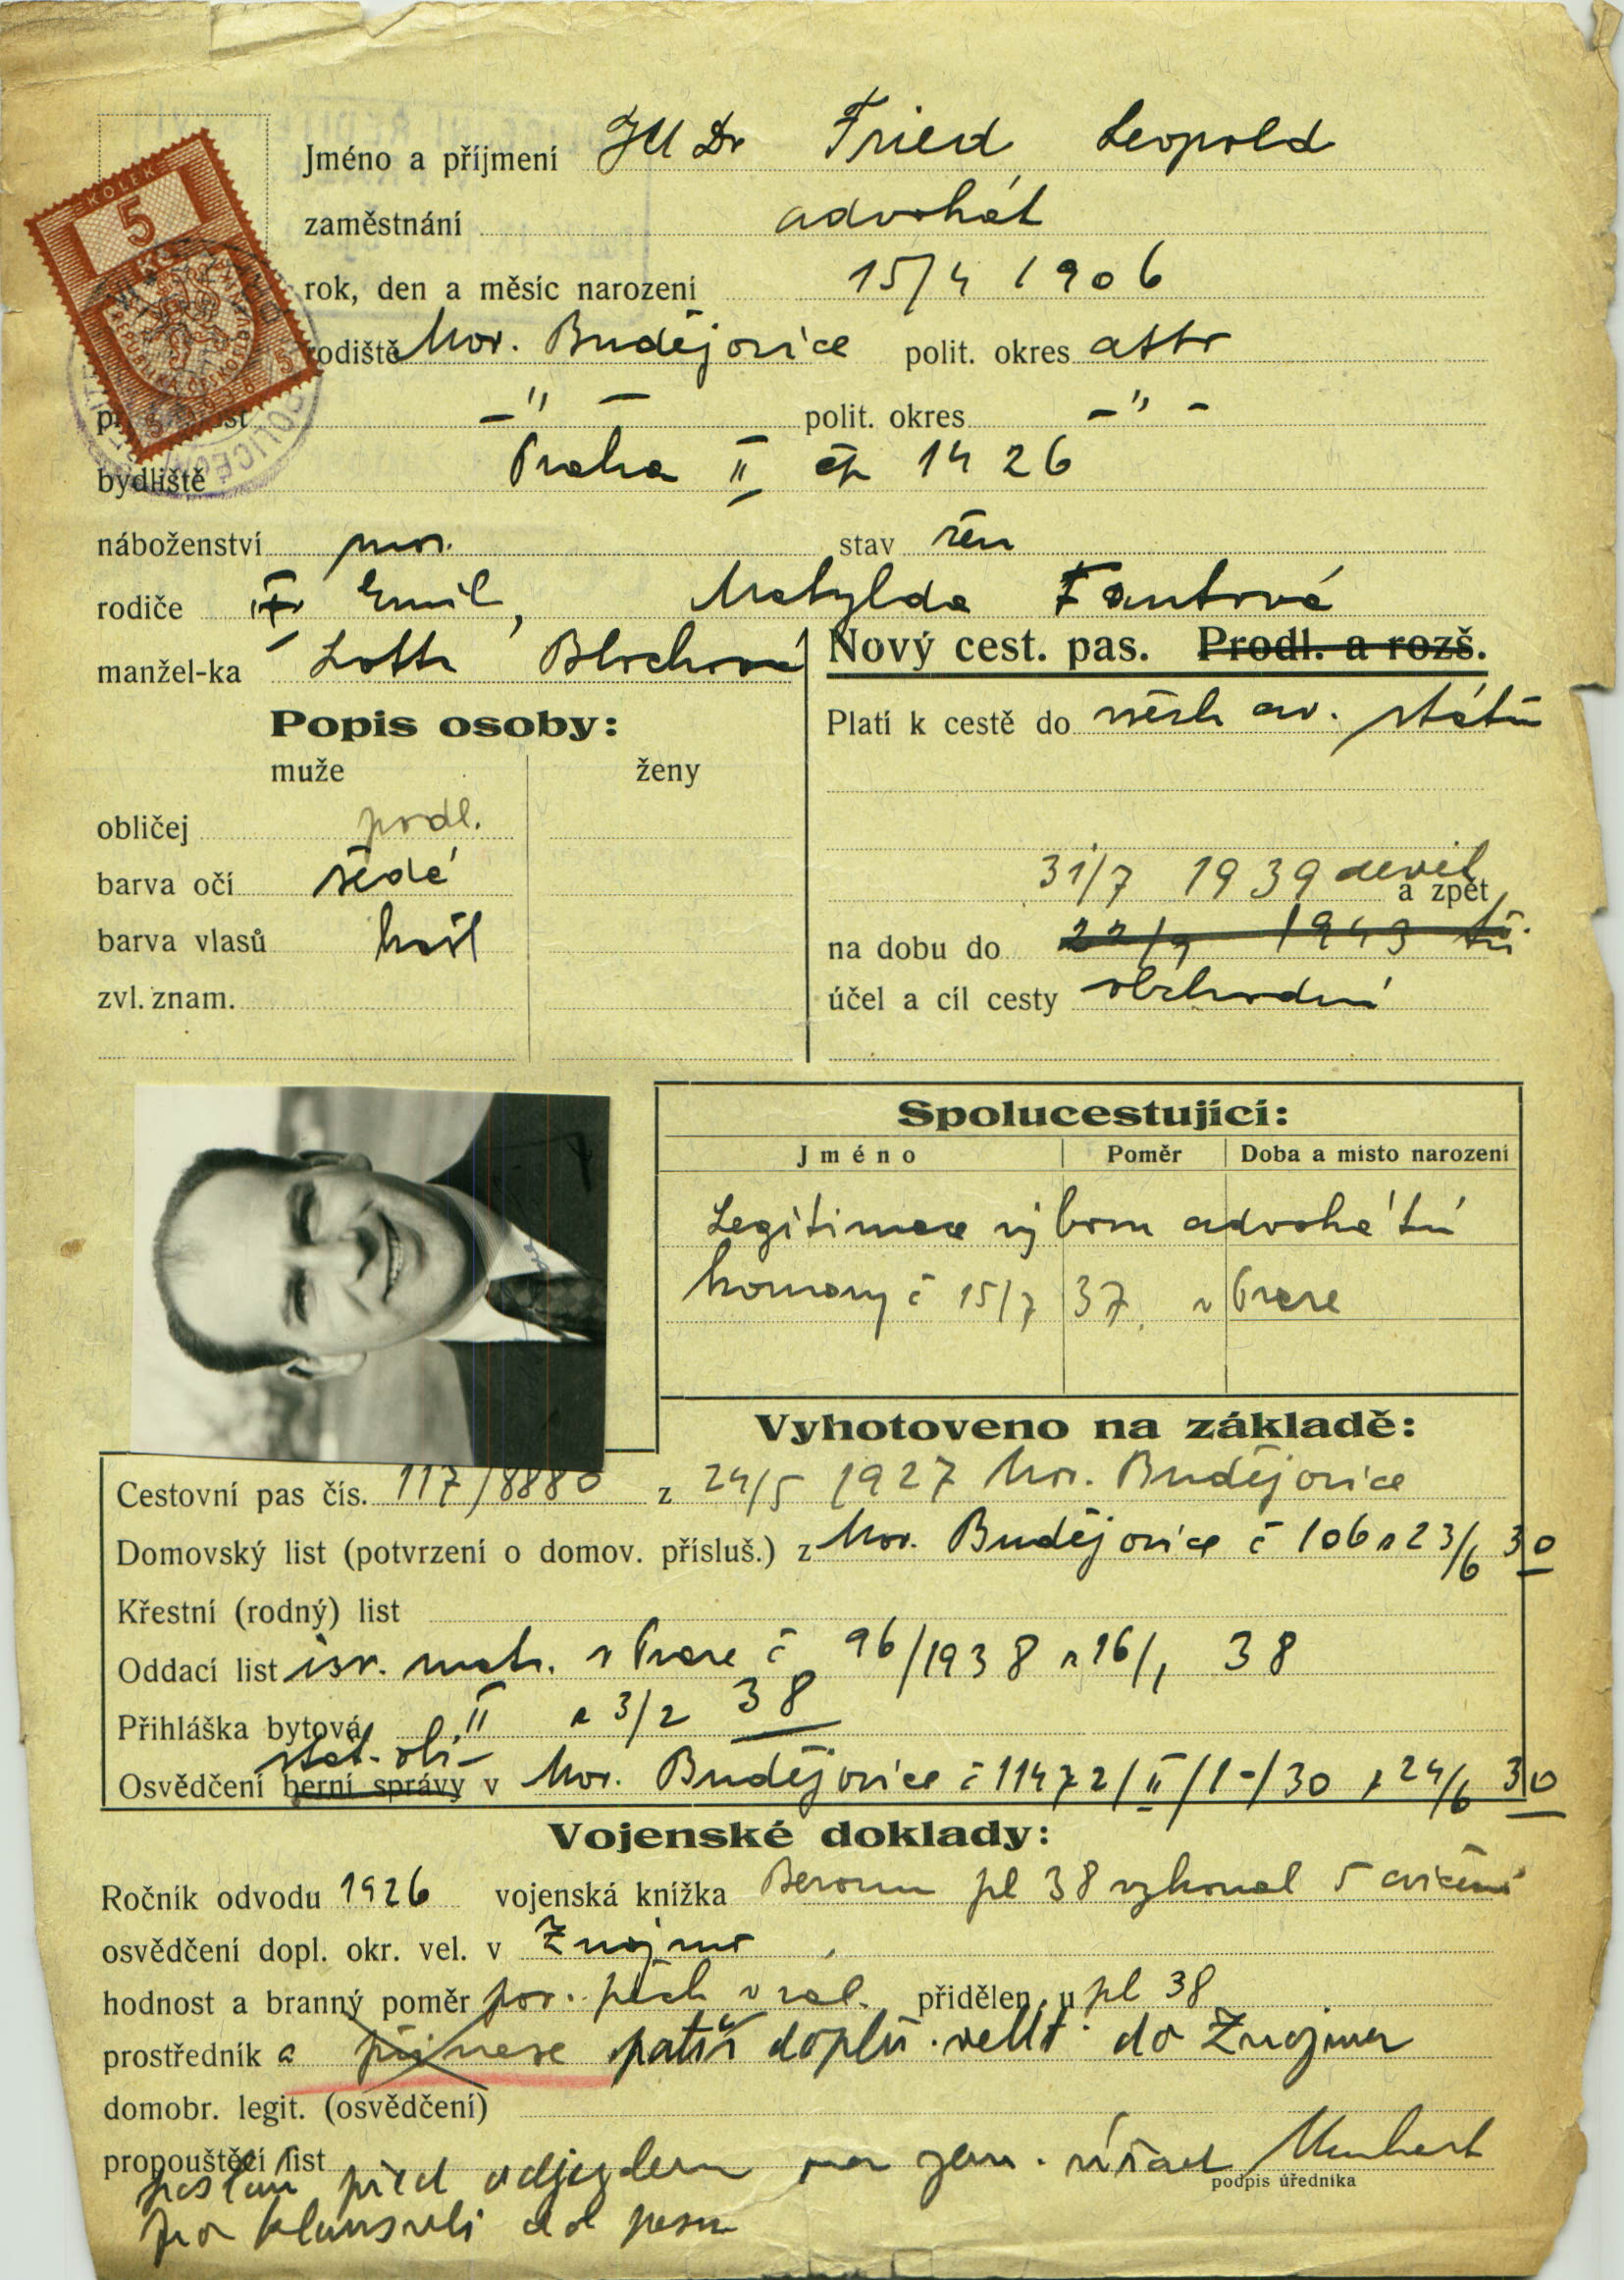 KOLEK
5
Kč
Jméno a příjmení JUDr Fried Leopold
zaměstnání advokát
rok, den a měsíc narození 15/4 1906
rodiště Mor. Budějovice polit. okres
-"- polit. okres -"-
bydliště Praha II čp 1426
náboženství stav žen
rodiče Emil, Matylda Fantová
manžel-ka Blochová
Nový cest. pas. Prodl. a rozš.
Popis osoby:
muže ženy
Platí k cestě do všech ev. států
obličej podl.
barva očí šedé
31/7 1939 devět a zpět
barva vlasů
na dobu do 22/9 1943 tři
zvl. znam.
účel a cíl cesty obchodní
Spolucestující:
Jméno Poměr Doba a místo narození
Legitimace výboru advokátní
komory č 15/7 37 v Praze
Vyhotoveno na základě:
Cestovní pas čís. 117/8880 z 24/5 1927 Mor. Budějovice
Domovský list (potvrzení o domov. přísluš.) z Mor. Budějovice č 106 z 23/6 30
Křestní (rodný) list
Oddací list isr. matr. v Praze č 96/1938 z 16/1 38
Přihláška bytová II z 3/2 38
Osvědčení berní správy v Mor. Budějovice č 11472/II/1-/30 z 24/6 30
Vojenské doklady:
Ročník odvodu 1926 vojenská knížka Beroun pl 38 vykonal 5 cvičení
osvědčení dopl. okr. vel. v Znojmo
hodnost a branný poměr por. pěch v zál. přidělen u pl 38
prostředník a přinese patří doplň. velit. do Znojma
domobr. legit. (osvědčení)
propouštěcí list
podpis úředníka
poslan před odjezdem na zem. úřad
pro klausuli do pasu